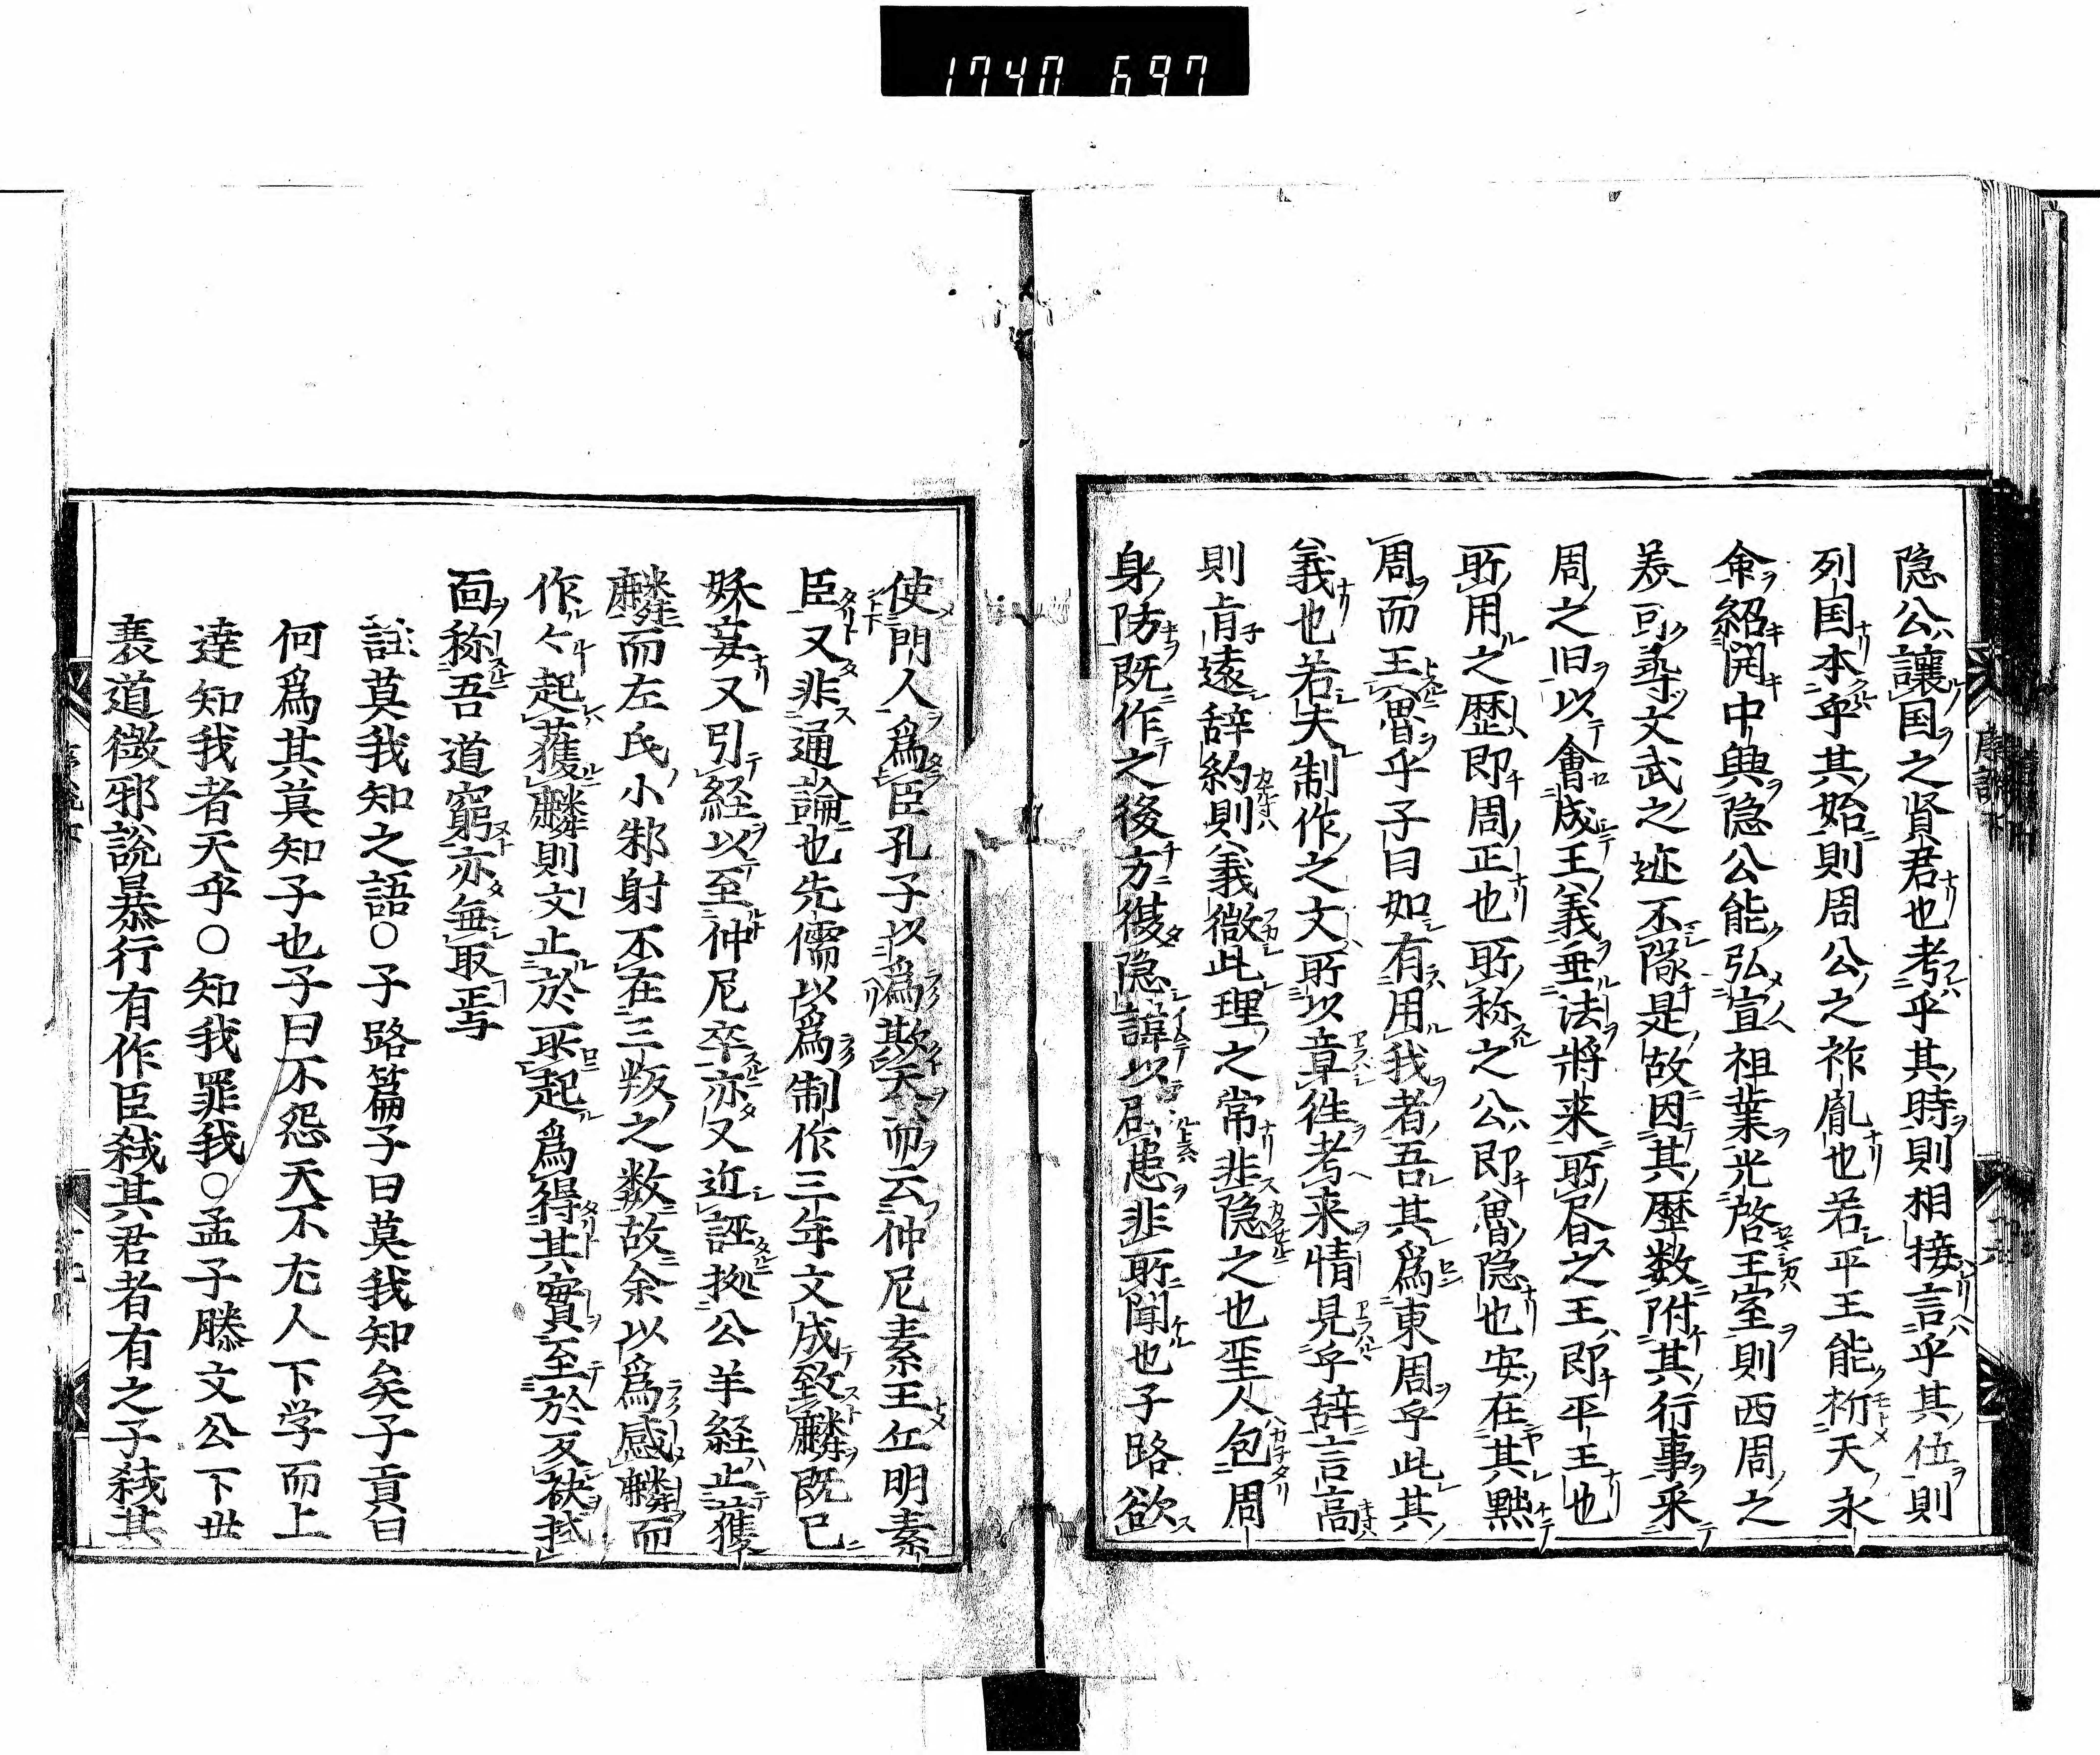 1740 697
隐公讓国之賢君也考乎其時則相接言乎其位則
列国本乎其始則周公之祚胤也若平王能祈天永
命紹開中興隐公能弘宣祖業光啓王室則西周之
羙可尋文武之迹不隊是故因其歴数附其行事采
周之旧以會成王義垂法將来所書之王即平王也
所用之歴即周正也所称之公即魯隐也安在其黜
周而王魯乎子曰如有用我者吾其爲東周乎此其
義也若夫制作之文所以章徃考来情見乎辞言高
則旨遠辞約則義微此理之常非隐之也聖人包周
身防既作之後方復隐諱以辟患非所聞也子路欲
使門人爲臣孔子以爲欺天而云仲尼素王丘明素
臣又非通論也先儒以爲制作三年文成致麟既已
妖妄又引経以至仲尼卒亦又近誣拠公羊経止獲
麟而左氏小邾射不在三叛之数故余以爲感麟而
作々起獲麟則文止於所起爲得其實至於反袂拭
面称吾道窮亦無取焉
註莫我知之語○子路篇子曰莫我知矣子貢曰
何爲其莫知子也子曰不怨天不尤人下学而上
達知我者天乎○知我罪我○孟子滕文公下世
衰道微邪說暴行有作臣弑其君者有之子弑其